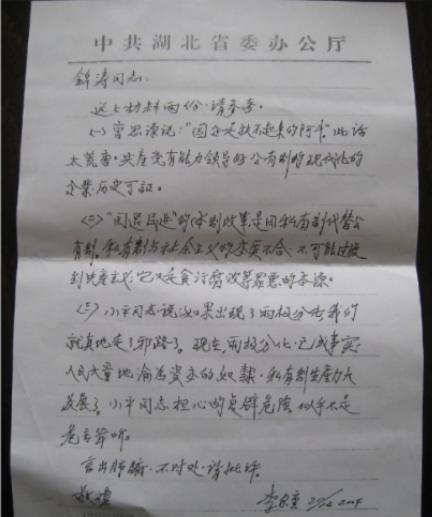 中共湖北省委办公厅
锦涛同志:
送上材料两份,请参考。
(一)曾思漠说:"国企是扶不起来的阿斗"此话
太荒唐,共产党有能力领导好公有制的现代化的
企业,历史可证。
(二)"国退民进"的体制改革,是用私有制代替公
有制。私有制与社会主义的本质不合,不可能过渡
到共产主义,它又是贪污腐败等罪恶的本源。
(三)小平同志说如果出现了两极分化我们
就真地走了邪路了。现在,两极分化,已成事实,
人民大量地沦为资本的奴隶,私有制生产力大
发展了。小平同志担心的复辟危险似乎不是
危言耸听。
言出肺腑,不对处,请批评。
敬礼
李 2004